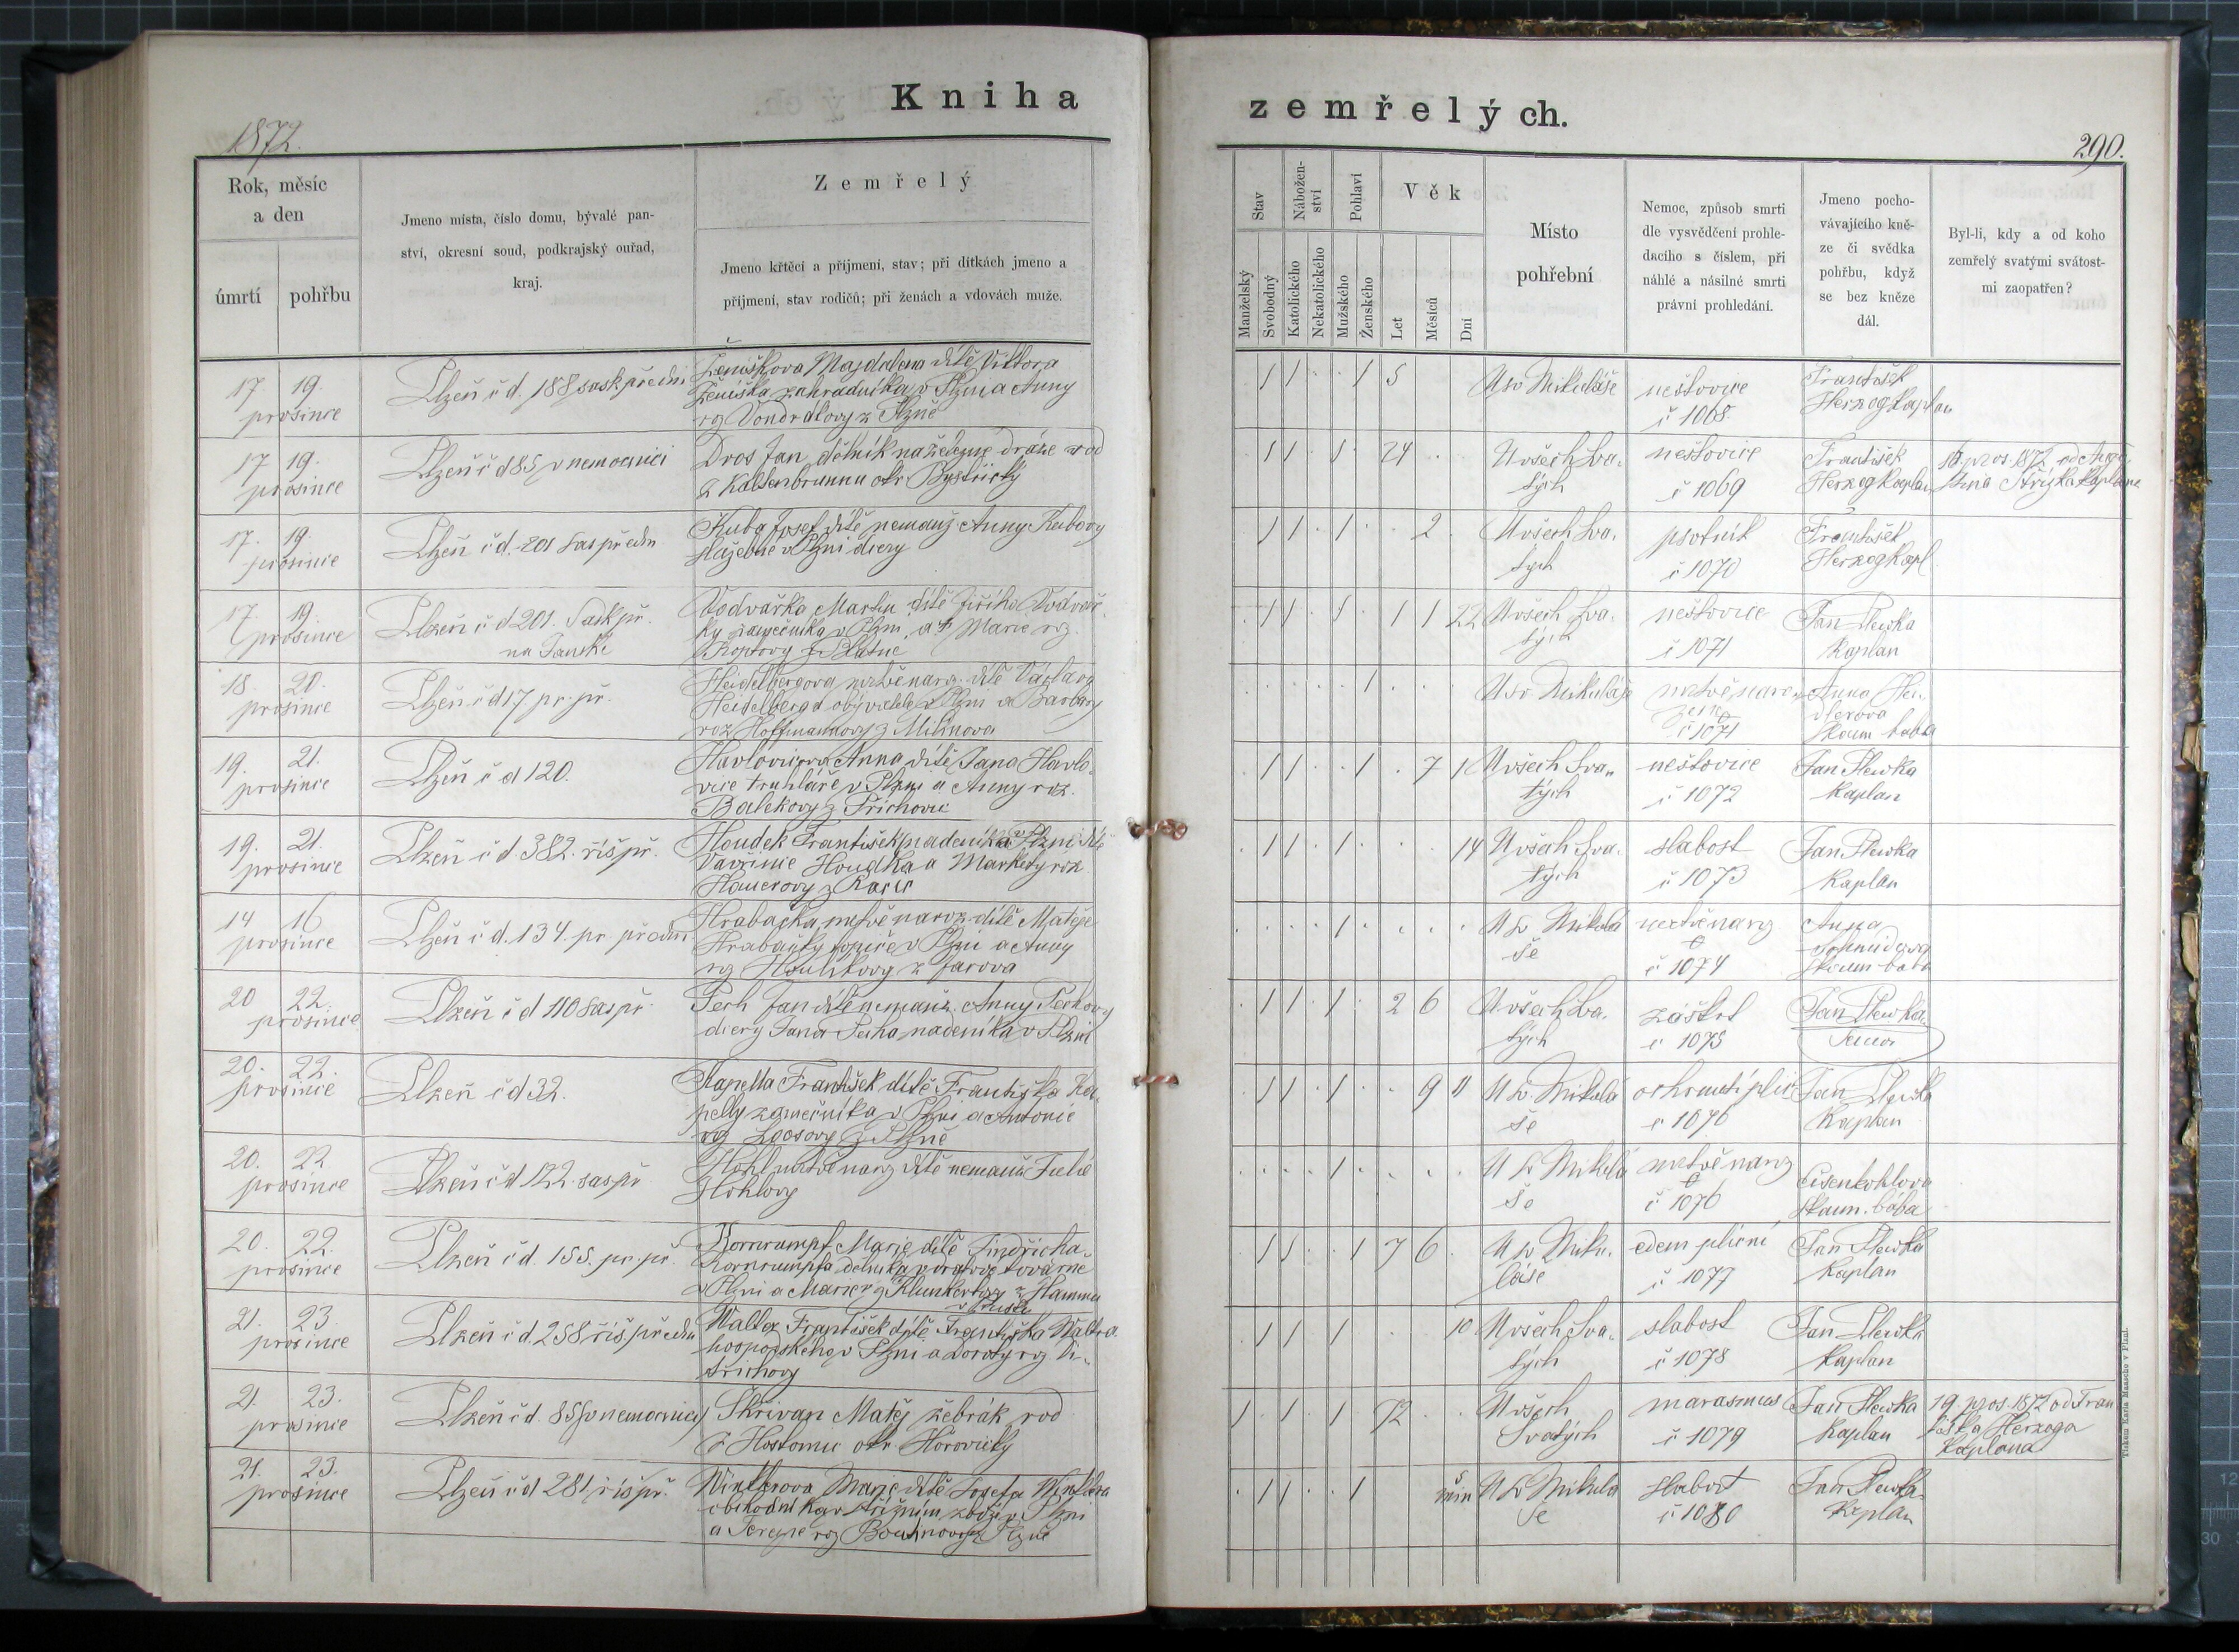 Kniha
zemřelých.
1872.
290.
Rok, měsíc
a den
úmrtí
pohřbu
Jmeno místa, číslo domu, bývalé pan-
ství, okresní soud, podkrajský ouřad,
kraj.
Zemřelý
Jmeno křtěcí a příjmení, stav; při dítkách jmeno a
příjmení, stav rodičů; při ženách a vdovách muže.
Stav
Manželský
Svobodný
Nábožen-
ství
Katolického
Nekatolického
Pohlaví
Mužského
Ženského
Věk
Let
Měsíců
Dní
Místo
pohřební
Nemoc, způsob smrti
dle vysvědčení prohle-
dacího s číslem, při
náhlé a násilné smrti
právní prohledání.
Jmeno pocho-
vávajícího kně-
ze či svědka
pohřbu, když
se bez kněze
dál.
Byl-li, kdy a od koho
zemřelý svatými svátost-
mi zaopatřen?
17. 19.
prosince
Plzeň č d. 188 sask předm
Ženíškova Majdalena dítě Viktora
Ženíška zahradníka v Plzni a Anny
rz Vondrálovy z Plzně
1 1 . . 1 5
U sv Mikuláše
neštovice
č 1068.
František
Herzog kaplan
17. 19.
prosince
Plzeň č d 85 v nemocnici
Dros Jan dělník na železné dráze rod
z Kaltenbrunnu okr. Bystřický
1 1 . 1 . 24 . .
U všech Sva-
tých
neštovice
č 1069
František
Herzog kaplan
pros. 1872 od
kaplana
17. 19.
prosince
Plzeň č d. 201 sas předm
Kuba Josef dítě nemanž. Anny Kubovy
služebné v Plzni dcery
1 1 . 1 . . 2 .
U všech Sva-
tých
psotník
č 1070
František
Herzog kapl
17. 19.
prosince
Plzeň č d 201. Sask př.
Vodvařka Martin dítě Jiřího Vodvař-
ky zámečníka v Plzni, a Marie rz.
1 1 . 1 . 1 1 22
U všech Sva-
tých
neštovice
č 1071
Jan Slewka
kaplan
18. 20.
prosince
Plzeň č d 17 pr. př.
Heidelbergova mrtvě narz. dítě Václava
Heidelberga obyvatele v Plzni a Barbory
roz Hoffmannovy z Milínova
U sv Mikuláše
mrtvě naro-
zené
č 1071
Anna
skoum. baba
19. 21.
prosince
Plzeň č d 120.
Havlovicova Anna dítě Jana Havlo-
vice truhláře v Plzni a Anny roz.
Balekovy z Přichovic
1 1 . . 1 . 7
U všech Sva-
tých
neštovice
č 1072
Jan Slewka
kaplan
19. 21.
prosince
Plzeň č d. 382. říš př.
Houdek František nadeníka v Plzni dítě
Vavřince Houdka a Markety roz
1 1 . 1 . . . 14
U všech Sva-
tých
slabost
č 1073
Jan Slewka
kaplan
14 16
prosince
Plzeň č d. 134. pr. předm
Hrabačka, mrtvě naroz. dítě Matěje
Hrabačky topiče v Plzni a Anny
rz Houlíkovy z Jarova
U sv. Mikulá
še
mrtvě narz
č 1074
Anna
skoum. baba
20 22.
prosince
Plzeň č d 110 sas př.
Pech Jan dítě nemanž. Anny Pechovy
dcery Jana Pecha nadeníka v Plzni
1 1 . 1 . 2 6
U všech Sva-
tých
záškrt
č 1075
Jan Slewka
20. 22.
prosince
Plzeň č d 32.
Kapella František dítě Františka Ka-
pelly zámečníka v Plzni a Antonie
rz Loosovy z Plzně
1 1 . 1 . . 9 11
U sv. Mikulá
še
ochrnutí plic
č 1076
Jan Slewka
kaplan
20. 22
prosince
Plzeň č d 122. sas př.
Hohl mrtvě narz dítě nemanž Julie
Hohlovy
U sv Mikulá
še
mrtvě narz
č 1076
Eisenkohlova
skoum. bába
20. 22.
prosince
Plzeň č d. 155. pr. př.
Kornrumpf Marie dítě Jindřicha
Kornrumpfa dělníka v továrně
v Plzni a Marie rz Klunkertovy z Hammu
v Prusku
1 1 . . 1 7 6 .
U sv Miku-
láše
edem plicní
č 1077
Jan Slewka
kaplan
21. 23.
prosince
Plzeň č d 258 říš předm
Walter František dítě Františka Waltra
hospodského v Plzni a Doroty rz
1 1 1 10
U všech Sva-
tých
slabost
č 1078
Jan Slewka
kaplan
21. 23.
prosince
Plzeň č d. 85 (v nemocnici)
Skřivan Matěj žebrák rod
z Hostomic okr. Hořovický
1 . 1 . 1 . 72 . .
U všech
Svatých
marasmus
č 1079
Jan Slewka
kaplan
19. pros. 1872 od Fran
tiška Herzoga
kaplana
21. 23.
prosince
Plzeň č d 281 říš př.
Winklerova Marie dítě Josefa Winklera
obchodníka v střižním zboží v Plzni
a Terezie rz z Plzně
. 1 1 . . 1
5
min
U sv Mikulá
še
slabost
č 1080
Jan Slewka
kaplan
Tiskem Karla Maascha v Plzni.